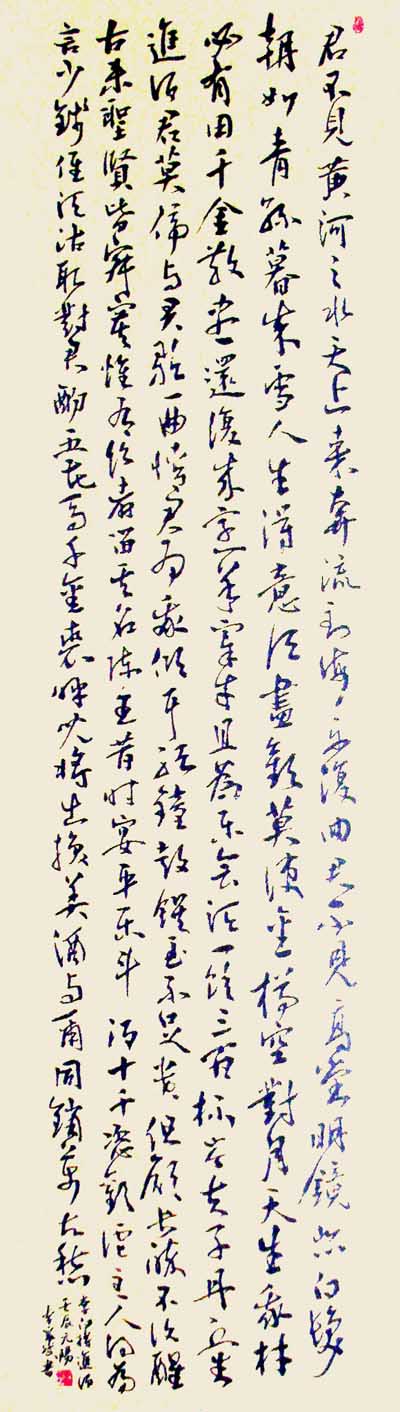 君不見黃河之水天上來奔流到海不復回君不見高堂明鏡悲白髮
朝如青絲暮成雪人生得意須盡歡莫使金樽空對月天生我材
必有用千金散盡還復來烹羊宰牛且為樂會須一飲三百杯岑夫子丹丘生
進酒君莫停與君歌一曲請君為我傾耳聽鐘鼓饌玉不足貴但願長醉不復醒
古來聖賢皆寂寞惟有飲者留其名陳王昔時宴平樂斗酒十千恣歡謔主人何為
言少錢徑須沽取對君酌五花馬千金裘呼兒將出換美酒與爾同銷萬古愁
李白將進酒
壬辰
書